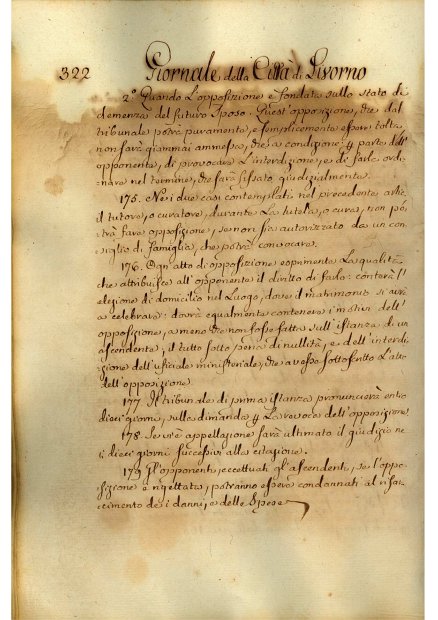 322 Giornale della Città di Livorno
2.° Quando L'opposizione è fondata sullo stato di
demenza del futuro Sposo. Quest'opposizione, che dal
tribunale potrà puramente, e semplicemente essere tolta,
non sarà giammai ammessa, che a condizione p parte dell'
opponente, di provocare L'interdizione, e di farle ordi-
nare nel termine, che sarà fissato giudizialmente.
175. Nei due casi contemplati nel precedente artic.
il tutore, o curatore, durante La tutela, o cura, non po-
trà fare opposizione, se non sia autorizzato da un con-
siglio di famiglia, che potrà convocare.
176. Ogni atto di opposizione esprimerà La qualità,
che attribuisce all'opponente il diritto di farla: conterrà l'
elezione di domicilio nel Luogo, dove il matrimonio si avrà
a celebrare: dovrà egualmente contenere i motivi dell'
opposizione, a meno che non fosse fatta sull'istanza di un
ascendente, il tutto sotto pena di nullità, e dell'interdi-
zione dell'ufiziale ministeriale, che avesse sottoscritto L'atto
dell'opposizione.
177. Il tribunale di prima istanza pronuncierà entro
dieci giorni, sulla dimanda p La revoca dell'opposizione
178. Se vi è appellazione sarà ultimato il giudizio ne
i dieci giorni successivi alla citazione.
179 Gl'opponenti, eccettuati gl'ascendenti, se l'oppo-
sizione è rigettata, potranno essere condannati al risar-
cimento dei danni, e delle Spese